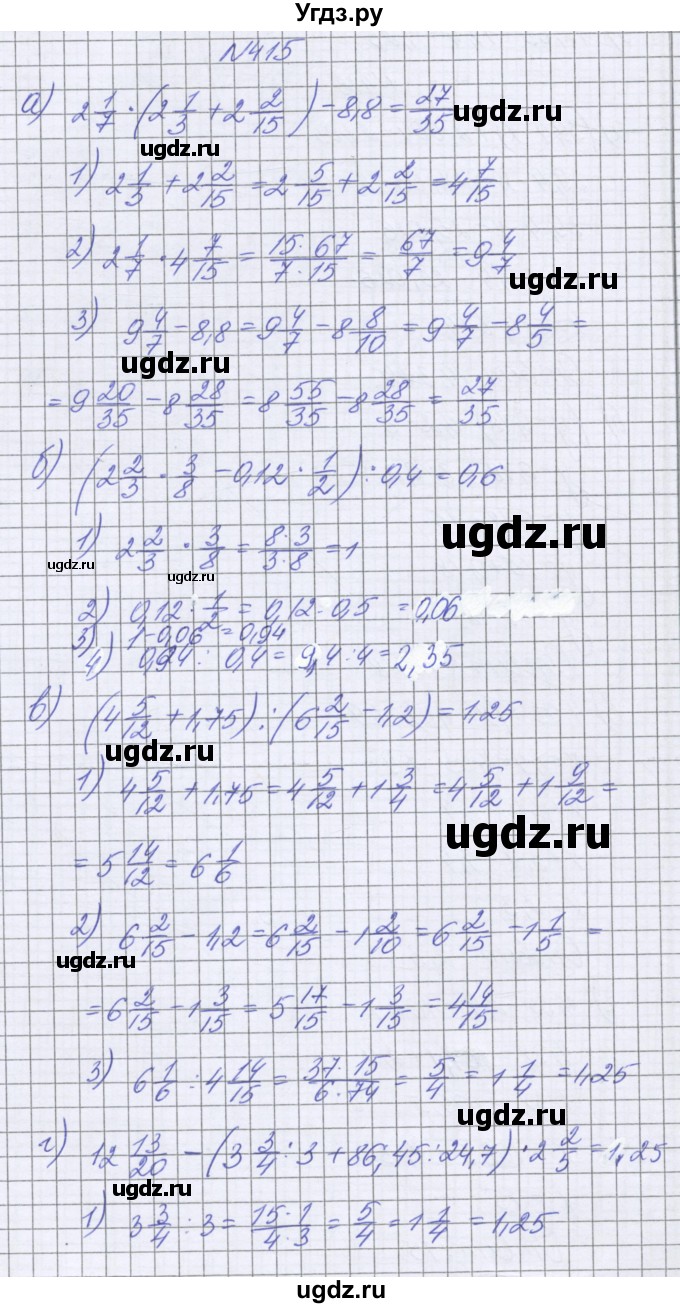 Угдз.ру
№415
а) 2 1/7 · (2 1/3 + 2 2/15) - 8,8 = 27/35 ugdz.ru
ugdz.ru
1) 2 1/3 + 2 2/15 = 2 5/15 + 2 2/15 = 4 7/15
2) 2 1/7 · 4 7/15 = 15·67/7·15 = 67/7 = 9 4/7
ugdz.ru
3) 9 4/7 - 8,8 = 9 4/7 - 8 8/10 = 9 4/7 - 8 4/5 =
ugdz.ru
= 9 20/35 - 8 28/35 = 8 55/35 - 8 28/35 = 27/35
б) (2 2/3 · 3/8 - 0,12 · 1/2) : 0,4 = 0,6
ugdz.ru
1) 2 2/3 · 3/8 = 8·3/3·8 = 1
ugdz.ru ugdz.ru
2) 0,12 · 1/2 = 0,12 · 0,5 = 0,06
3) 1 - 0,06 = 0,94
4) 0,94 : 0,4 = 9,4 : 4 = 2,35
в) (4 5/12 + 1,75) : (6 2/15 - 1,2) = 1,25
ugdz.ru
1) 4 5/12 + 1,75 = 4 5/12 + 1 3/4 = 4 5/12 + 1 9/12 =
ugdz.ru
= 5 14/12 = 6 1/6
2) 6 2/15 - 1,2 = 6 2/15 - 1 2/10 = 6 2/15 - 1 1/5 =
ugdz.ru
= 6 2/15 - 1 3/15 = 5 17/15 - 1 3/15 = 4 14/15
3) 6 1/6 : 4 14/15 = 37·15/6·74 = 5/4 = 1 1/4 = 1,25
ugdz.ru
г) 12 13/20 - (3 3/4 : 3 + 86,45 : 24,7) · 2 2/5 = 1,25
ugdz.ru
1) 3 3/4 : 3 = 15·1/4·3 = 5/4 = 1 1/4 = 1,25
ugdz.ru